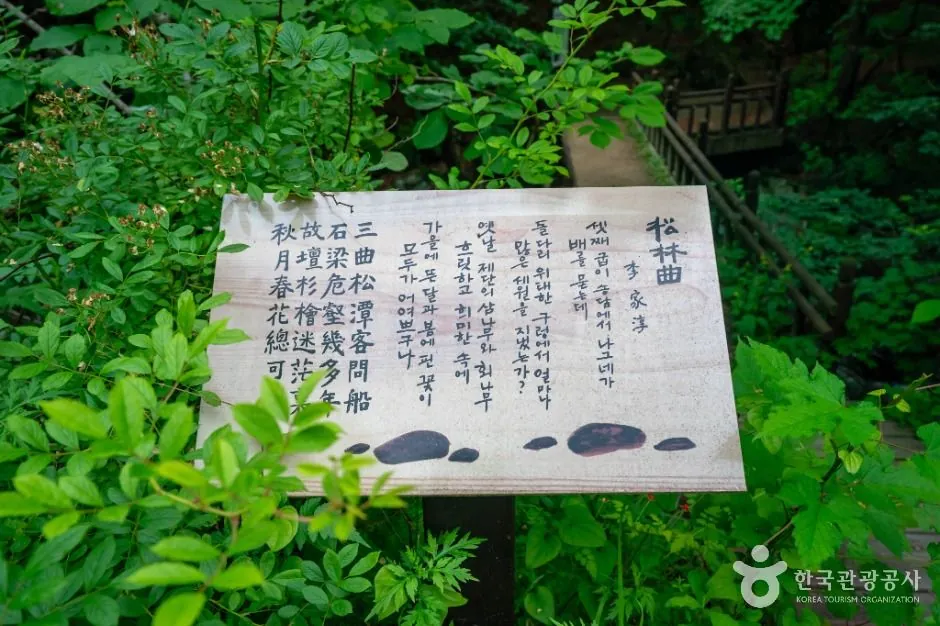 松林曲
李家淳
셋째 굽이 송담에서 나그네가
배를 묻는데
돌다리 위태한 구렁에서 얼마나
많은 세월을 지냈는가?
옛날 제단의 삼나무와 회나무
흐릿하고 희미한 속에
가을에 뜬 달과 봄에 핀 꽃이
모두가 어여쁘구나
三曲松潭客問船
石梁危壑幾多年
故壇杉檜迷茫
秋月春花總可
한국관광공사
KOREA TOURISM ORGANIZATION